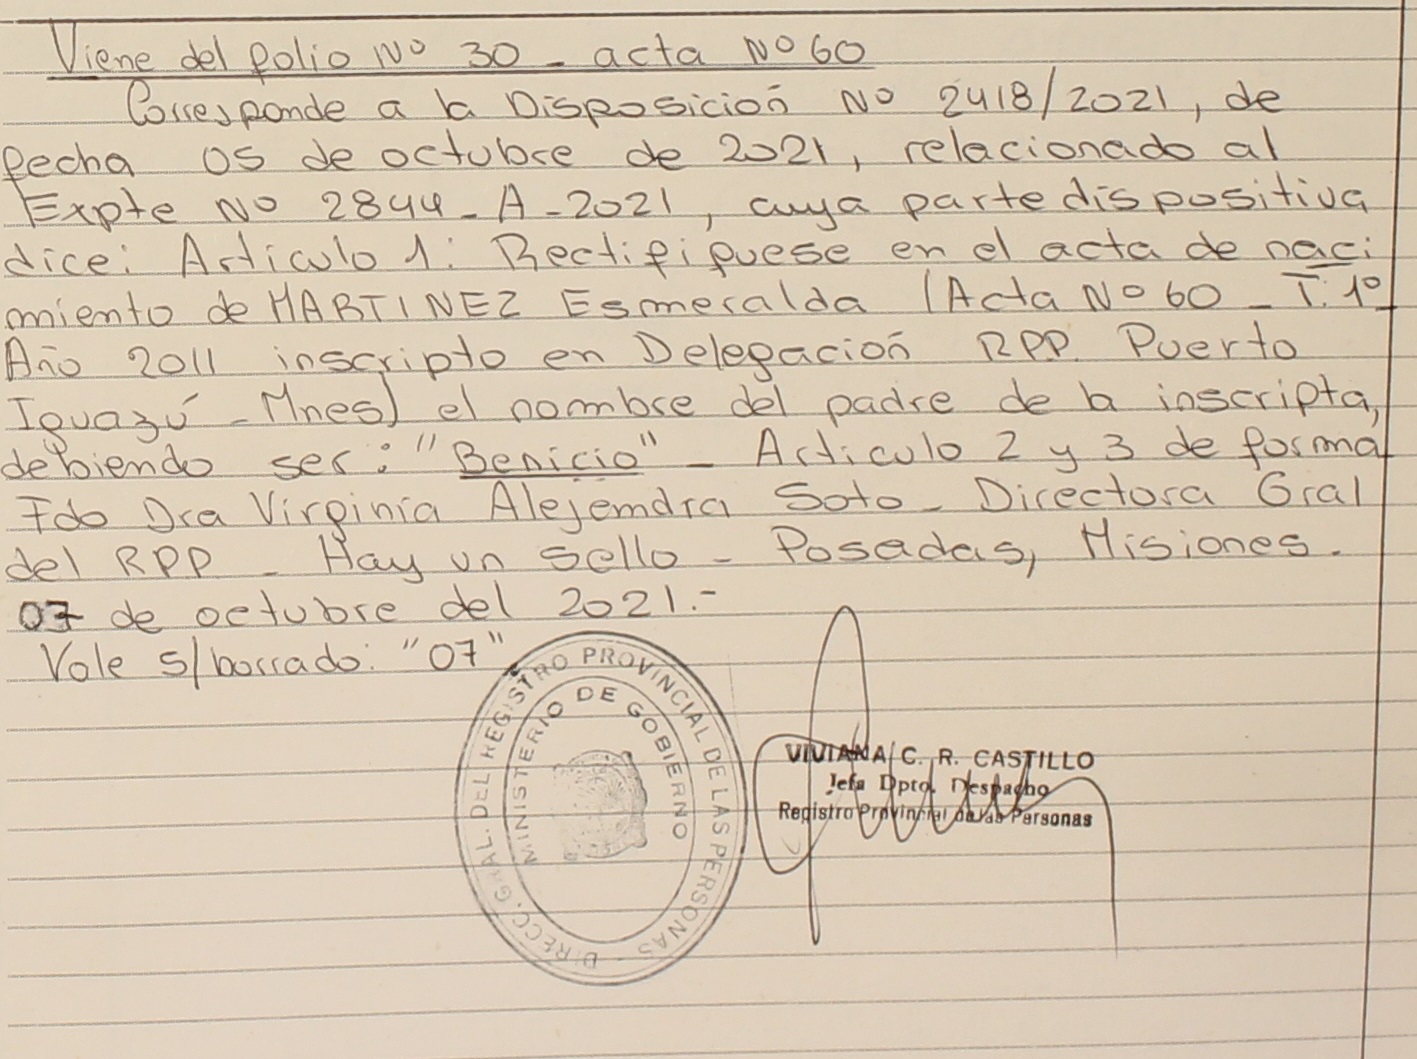 Viene del folio Nº 30 - acta Nº 60
Corresponde a la Disposición Nº 2418/2021, de
fecha 05 de octubre de 2021, relacionado al
Expte Nº 2844-A-2021, cuya parte dispositiva
dice: Artículo 1: Rectifiquese en el acta de naci
miento de MARTINEZ Esmeralda (Acta Nº 60 - T: 1º
Año 2011 inscripto en Delegación RPP. Puerto
Iguazú - Mnes) el nombre del padre de la inscripta,
debiendo ser: "Benicio" - Articulo 2 y 3 de forma
Fdo Dra Virginia Alejemdra Soto - Directora Gral
del RPP - Hay un sello - Posadas, Misiones.
07 de octubre del 2021.-
Vale s/borrado: "07"
DIRECC. GRAL. DEL REGISTRO PROVINCIAL DE LAS PERSONAS -
MINISTERIO DE GOBIERNO
VIVIANA C. R. CASTILLO
Jefa Dpto. Despacho
Registro Provincial de las Personas